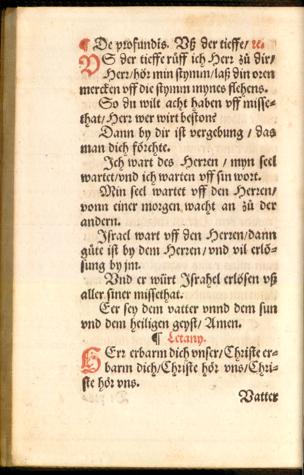 ¶ De profundis. Vß der tieffe/ ꝛc.
VS der tieffe rüff ich Herr zů dir/
Herr/hör min stymm/laß din oren
mercken vff die stymm mynes flehens.
So du wilt acht haben vff misse-
that/Herr wer wirt beston?
Dann by dir ist vergebung / das
man dich förchte.
Ich wart des Herren / myn seel
wartet/vnd ich warten vff sin wort.
Min seel wartet vff den Herren/
vonn einer morgen wacht an zů der
andern.
Israel wart vff den Herren/dann
güte ist by dem Herren/vnd vil erlö-
sung by jm.
Vnd er würt Israhel erlösen vß
aller siner missethat.
Eer sey dem vatter vnnd dem sun
vnd dem heiligen geyst/ Amen.
¶ Letany.
HErr erbarm dich vnser/Christe er-
barm dich/Christe hör vns/Chri-
ste hör vns.
Vatter